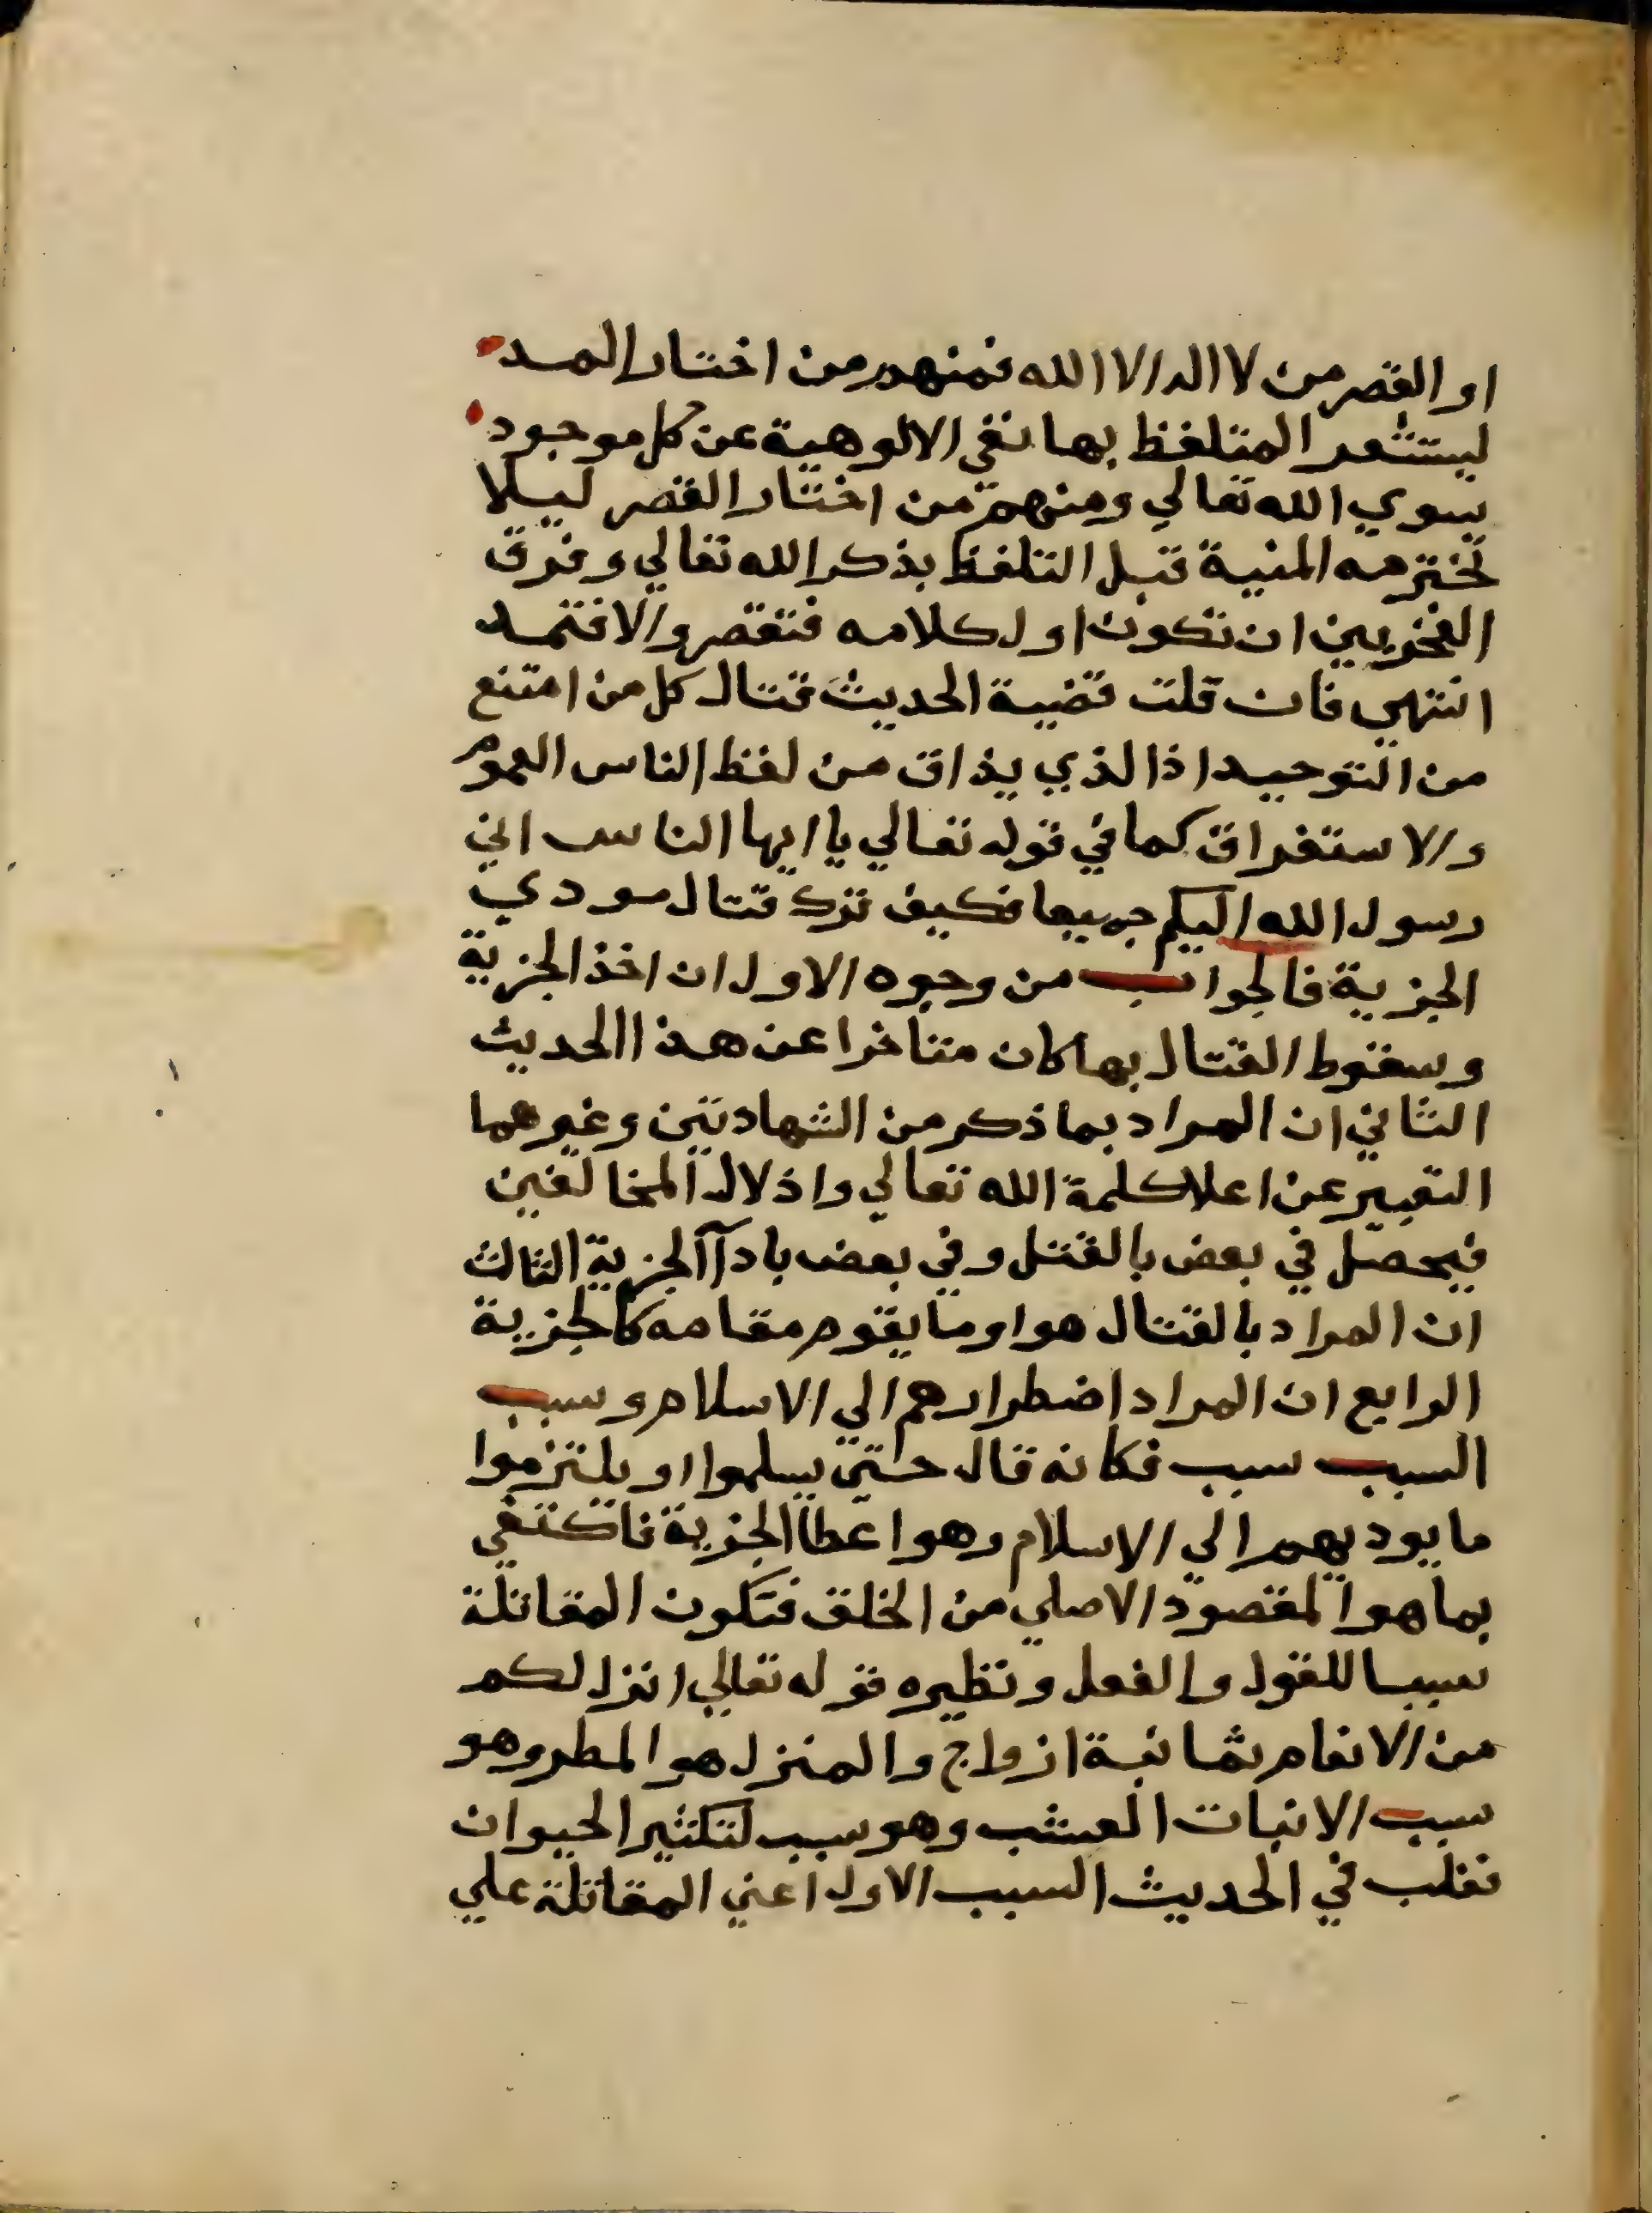 او القصر من لا اله الا الله فمنهم من اختار المد
ليستشعر المتلفظ بها نفي الالوهية عن كل موجود
سوي الله تعالي ومنهم من اختار القصر ليلا
تخترمه المنية قبل التلفظ بذكر الله تعالي وفرق
الفخر بين ان تكون اول كلامه فتقصر والا فتمد
انتهي فان قلت قضية الحديث قتال كل من امتنع
من التوحيد اذ الذي يذاق من لفظ الناس العموم
والاستغراق كما في قوله تعالي يا ايها الناس اني
رسول الله اليكم جميعا فكيف ترك قتال مودي
الجزية فالجواب من وجوه الاول ان اخذ الجزية
وسقوط القتال بها كان متاخرا عن هذا الحديث
الثاني ان المراد بما ذكر من الشهادتين وغيرهما
التعبير عن اعلا كلمة الله تعالي واذلال المخالفين
فيحصل في بعض بالقتل وفي بعض بادآ الجزية الثالث
ان المراد بالقتال هو او ما يقوم مقامه كالجزية
الرابع ان المراد اضطرارهم الي الاسلام وسبب
السبب سبب فكانه قال حتي يسلموا او يلتزموا
ما يوديهم الي الاسلام وهو اعطا الجزية فاكتفي
بما هو المقصود الاصلي من الخلق فتكون المقاتلة
سببا للقول والفعل ونظيره قوله تعالي انزل لكم
من الانعام ثمانية ازواج والمنزل هو المطر وهو
سبب الانبات العشب وهو سبب لتكثير الحيوان
فغلب في الحديث السبب الاول اعني المقاتلة علي